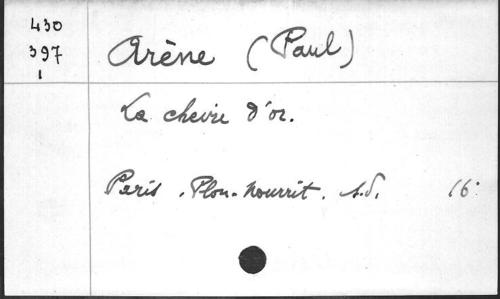 430
397
1
Arène (Paul)
La chevre d'or.
Paris. Plon-Nourrit. s.d. 16°